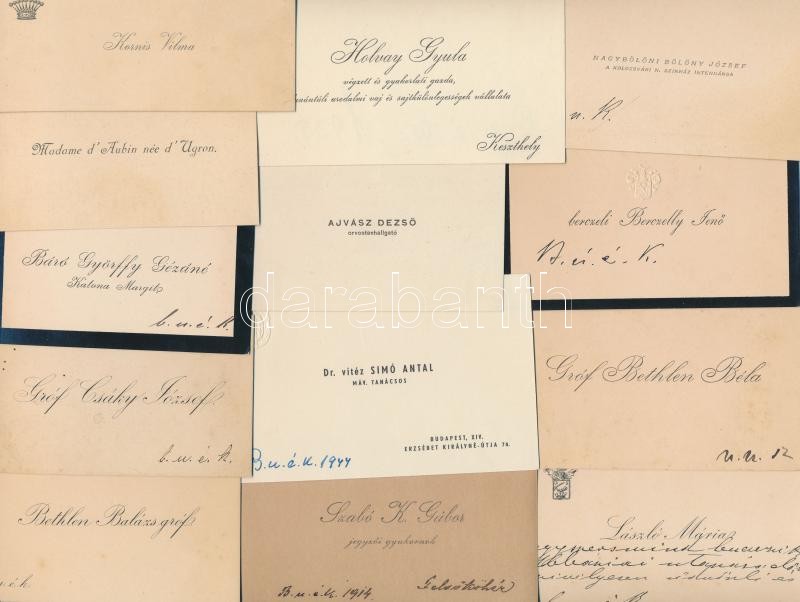 Kornis Vilma
Madame d'Aubin née d'Ugron.
Báró Györffy Gézáné
Katona Margit
b. u. é. k.
Gróf Csáky József
b. u. é. k.
Bethlen Balázs gróf
u. é. k.
Holvay Gyula
végzett és gyakorlati gazda,
uradalmi vaj és sajtkülönlegességek vállalata
Keszthely
AJVÁSZ DEZSŐ
orvostanhallgató
darabanth
Dr. vitéz SIMÓ ANTAL
MÁV. TANÁCSOS
BUDAPEST, XIV.
ERZSÉBET KIRÁLYNÉ-ÚTJA 76.
B. u. é. k. 1944
Szabó K. Gábor
jegyzői gyakornok
B. u. é. k. 1914
NAGYBÖLÖNI BÖLÖNY JÓZSEF
A KOLOZSVÁRI N. SZINHÁZ INTENDÁNSA
u. K.
berczeli Berczelly Jenő
B. ú. é. K.
Gróf Bethlen Béla
László Mária